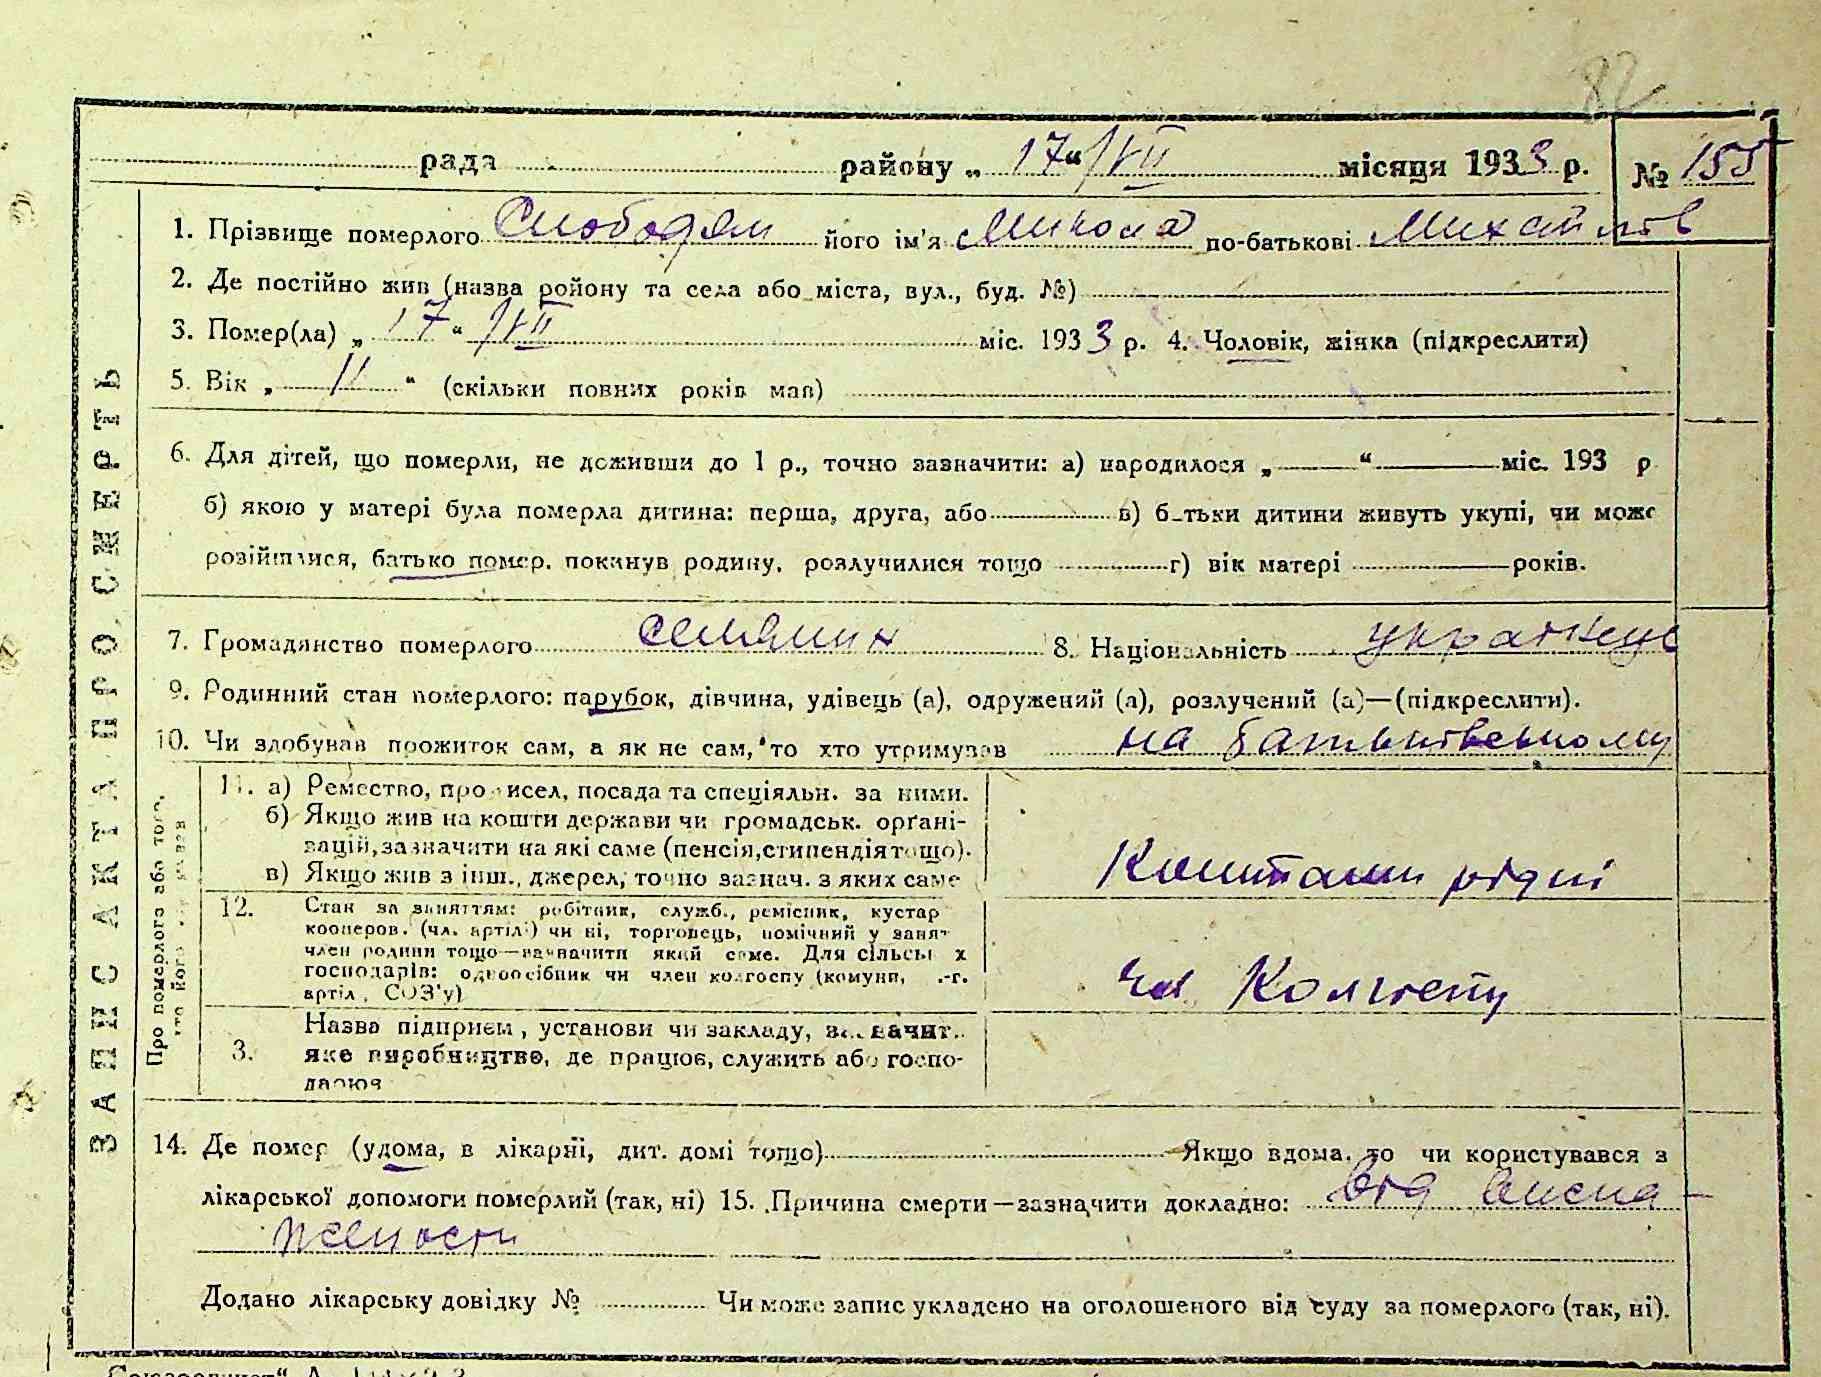 82
рада района „ 17 “ /VII місяця 1933 р. № 155
1. Прізвище померлого Слободян його ім'я Микола по-батькові Михайлов
2. Де постійно жив (назва ройону та села або міста, вул., буд. №)
3. Помер(ла) „ 17 “ /VII міс. 1933 р. 4. Чоловік, жінка (підкреслити)
5. Вік „ 11 “ (скільки повних років мав)
6. Для дітей, що померли, не доживши до 1 р., точно зазначити: а) народилося „ “ міс. 193 р
б) якою у матері була померла дитина: перша, друга, або в) б тьки дитини живуть укупі, чи може
розійшлися, батько помер, покинув родину, розлучилися тощо г) вік матері років.
7. Громадянство померлого селянин 8. Національність українец
9. Родинний стан померлого: парубок, дівчина, удівець (а), одружений (а), розлучений (а)—(підкреслити).
10. Чи здобував прожиток сам, а як не сам, то хто утримував на батьківському
11. а) Ремество, промисел, посада та спеціяльн. за ними.
б) Якщо жив на кошти держави чи громадськ. орґані-
зацій, зазначити на які саме (пенсія, стипендія тощо).
в) Якщо жив з інш., джерел, точно зазнач. з яких саме
Коштами рідні
12. Стан за заняттям: робітник, служб., ремісник, кустар
кооперов. (чл. артіл.) чи ні, торговець, помічний у занят
член родини тощо—зазначити який саме. Для сільськ х
господарів: одноосібник чи член колгоспу (комуни, .-г.
артіл, СОЗ'у)
чл Колгоспу
3. Назва підприєм, установи чи закладу, зазначит..
яке виробництво, де працює, служить або госпо-
дарює
14. Де помер (удома, в лікарні, дит. домі тощо) Якщо вдома, то чи користувався з
лікарської допомоги померлий (так, ні) 15. Причина смерти—зазначити докладно: від висна-
жености
Додано лікарську довідку № Чи може запис укладено на оголошеного від суду за померлого (так, ні).
ЗАПИС АКТА ПРО СМЕРТЬ
Про померлого або того,